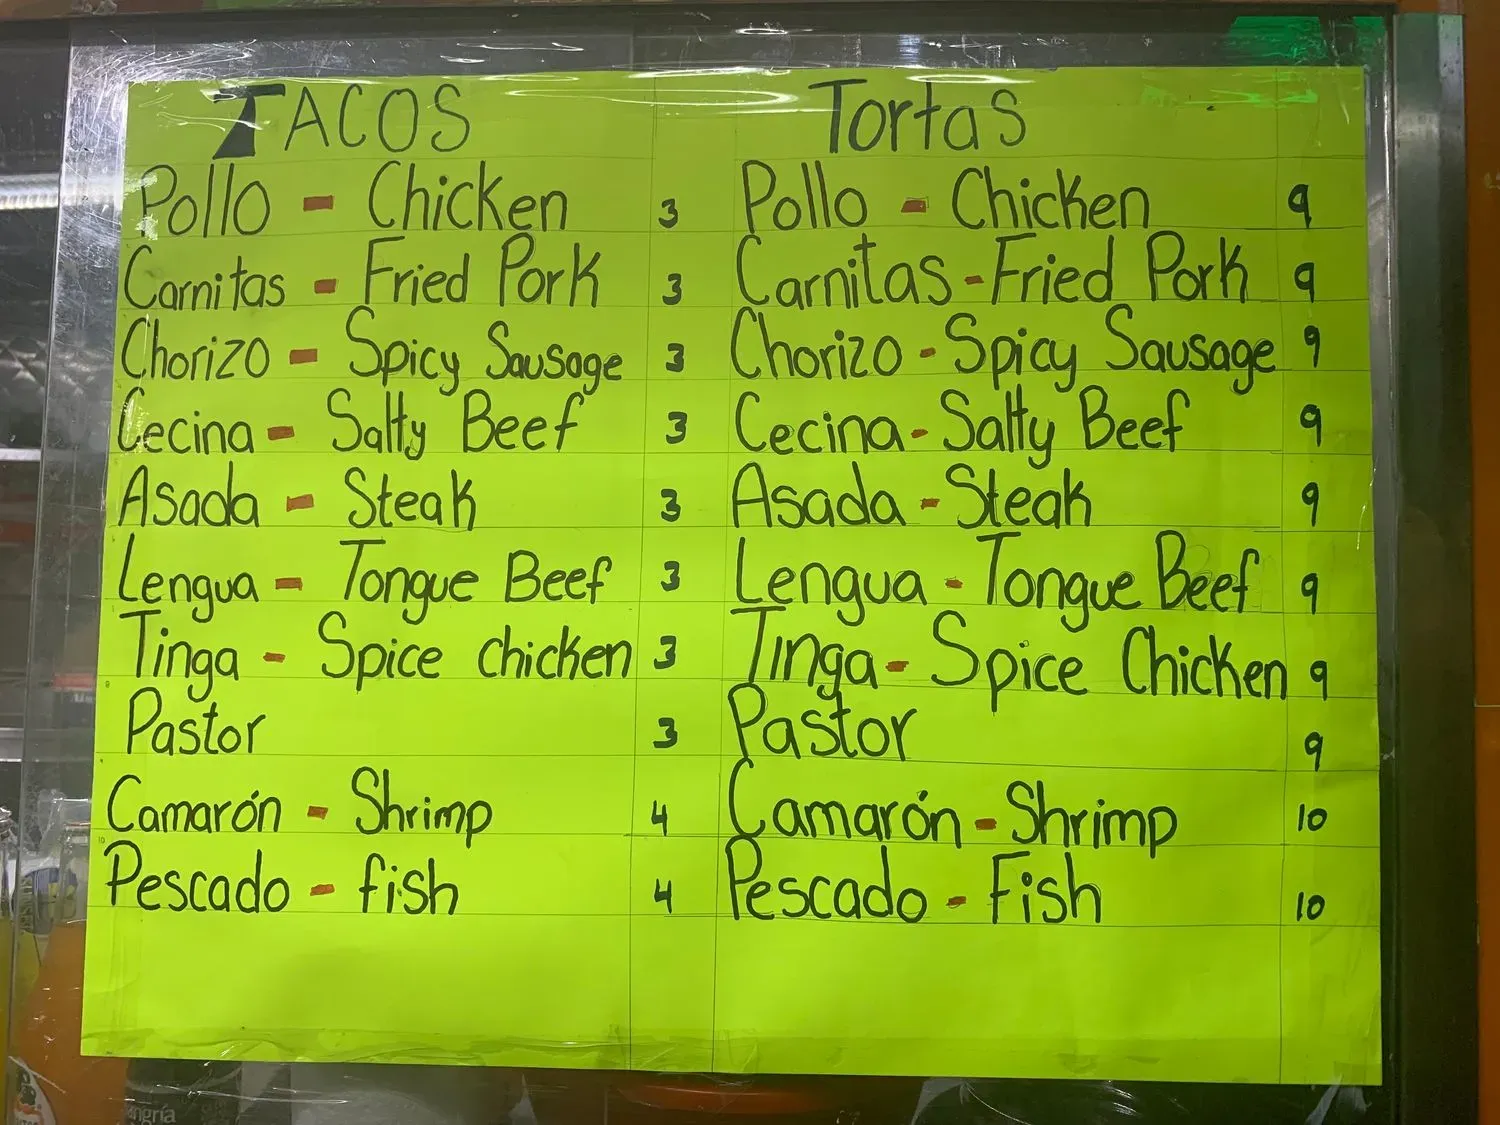 TACOS Tortas
Pollo - Chicken 3 Pollo - Chicken 9
Carnitas - Fried Pork 3 Carnitas - Fried Pork 9
Chorizo - Spicy Sausage 3 Chorizo - Spicy Sausage 9
Cecina - Salty Beef 3 Cecina - Salty Beef 9
Asada - Steak 3 Asada - Steak 9
Lengua - Tongue Beef 3 Lengua - Tongue Beef 9
Tinga - Spice chicken 3 Tinga - Spice Chicken 9
Pastor 3 Pastor 9
Camarón - Shrimp 4 Camarón - Shrimp 10
Pescado - fish 4 Pescado - Fish 10